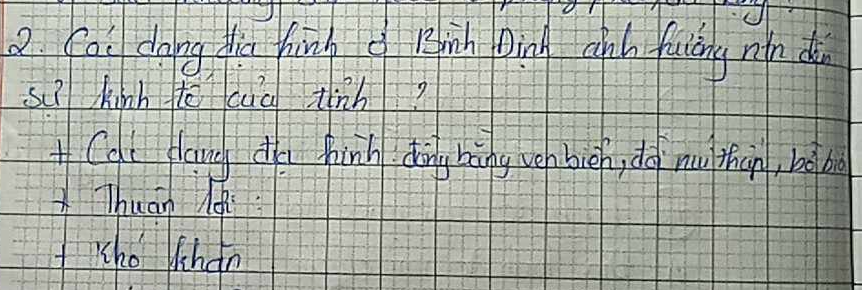 2. Các dạng địa hình ở Bình Định ảnh hưởng ntn đến
sự kinh tế của tỉnh ?
+ Các dạng địa hình: đồng bằng ven biển, đồi núi thấp, bờ biể
+ Thuận lợi :
+ Khó khăn